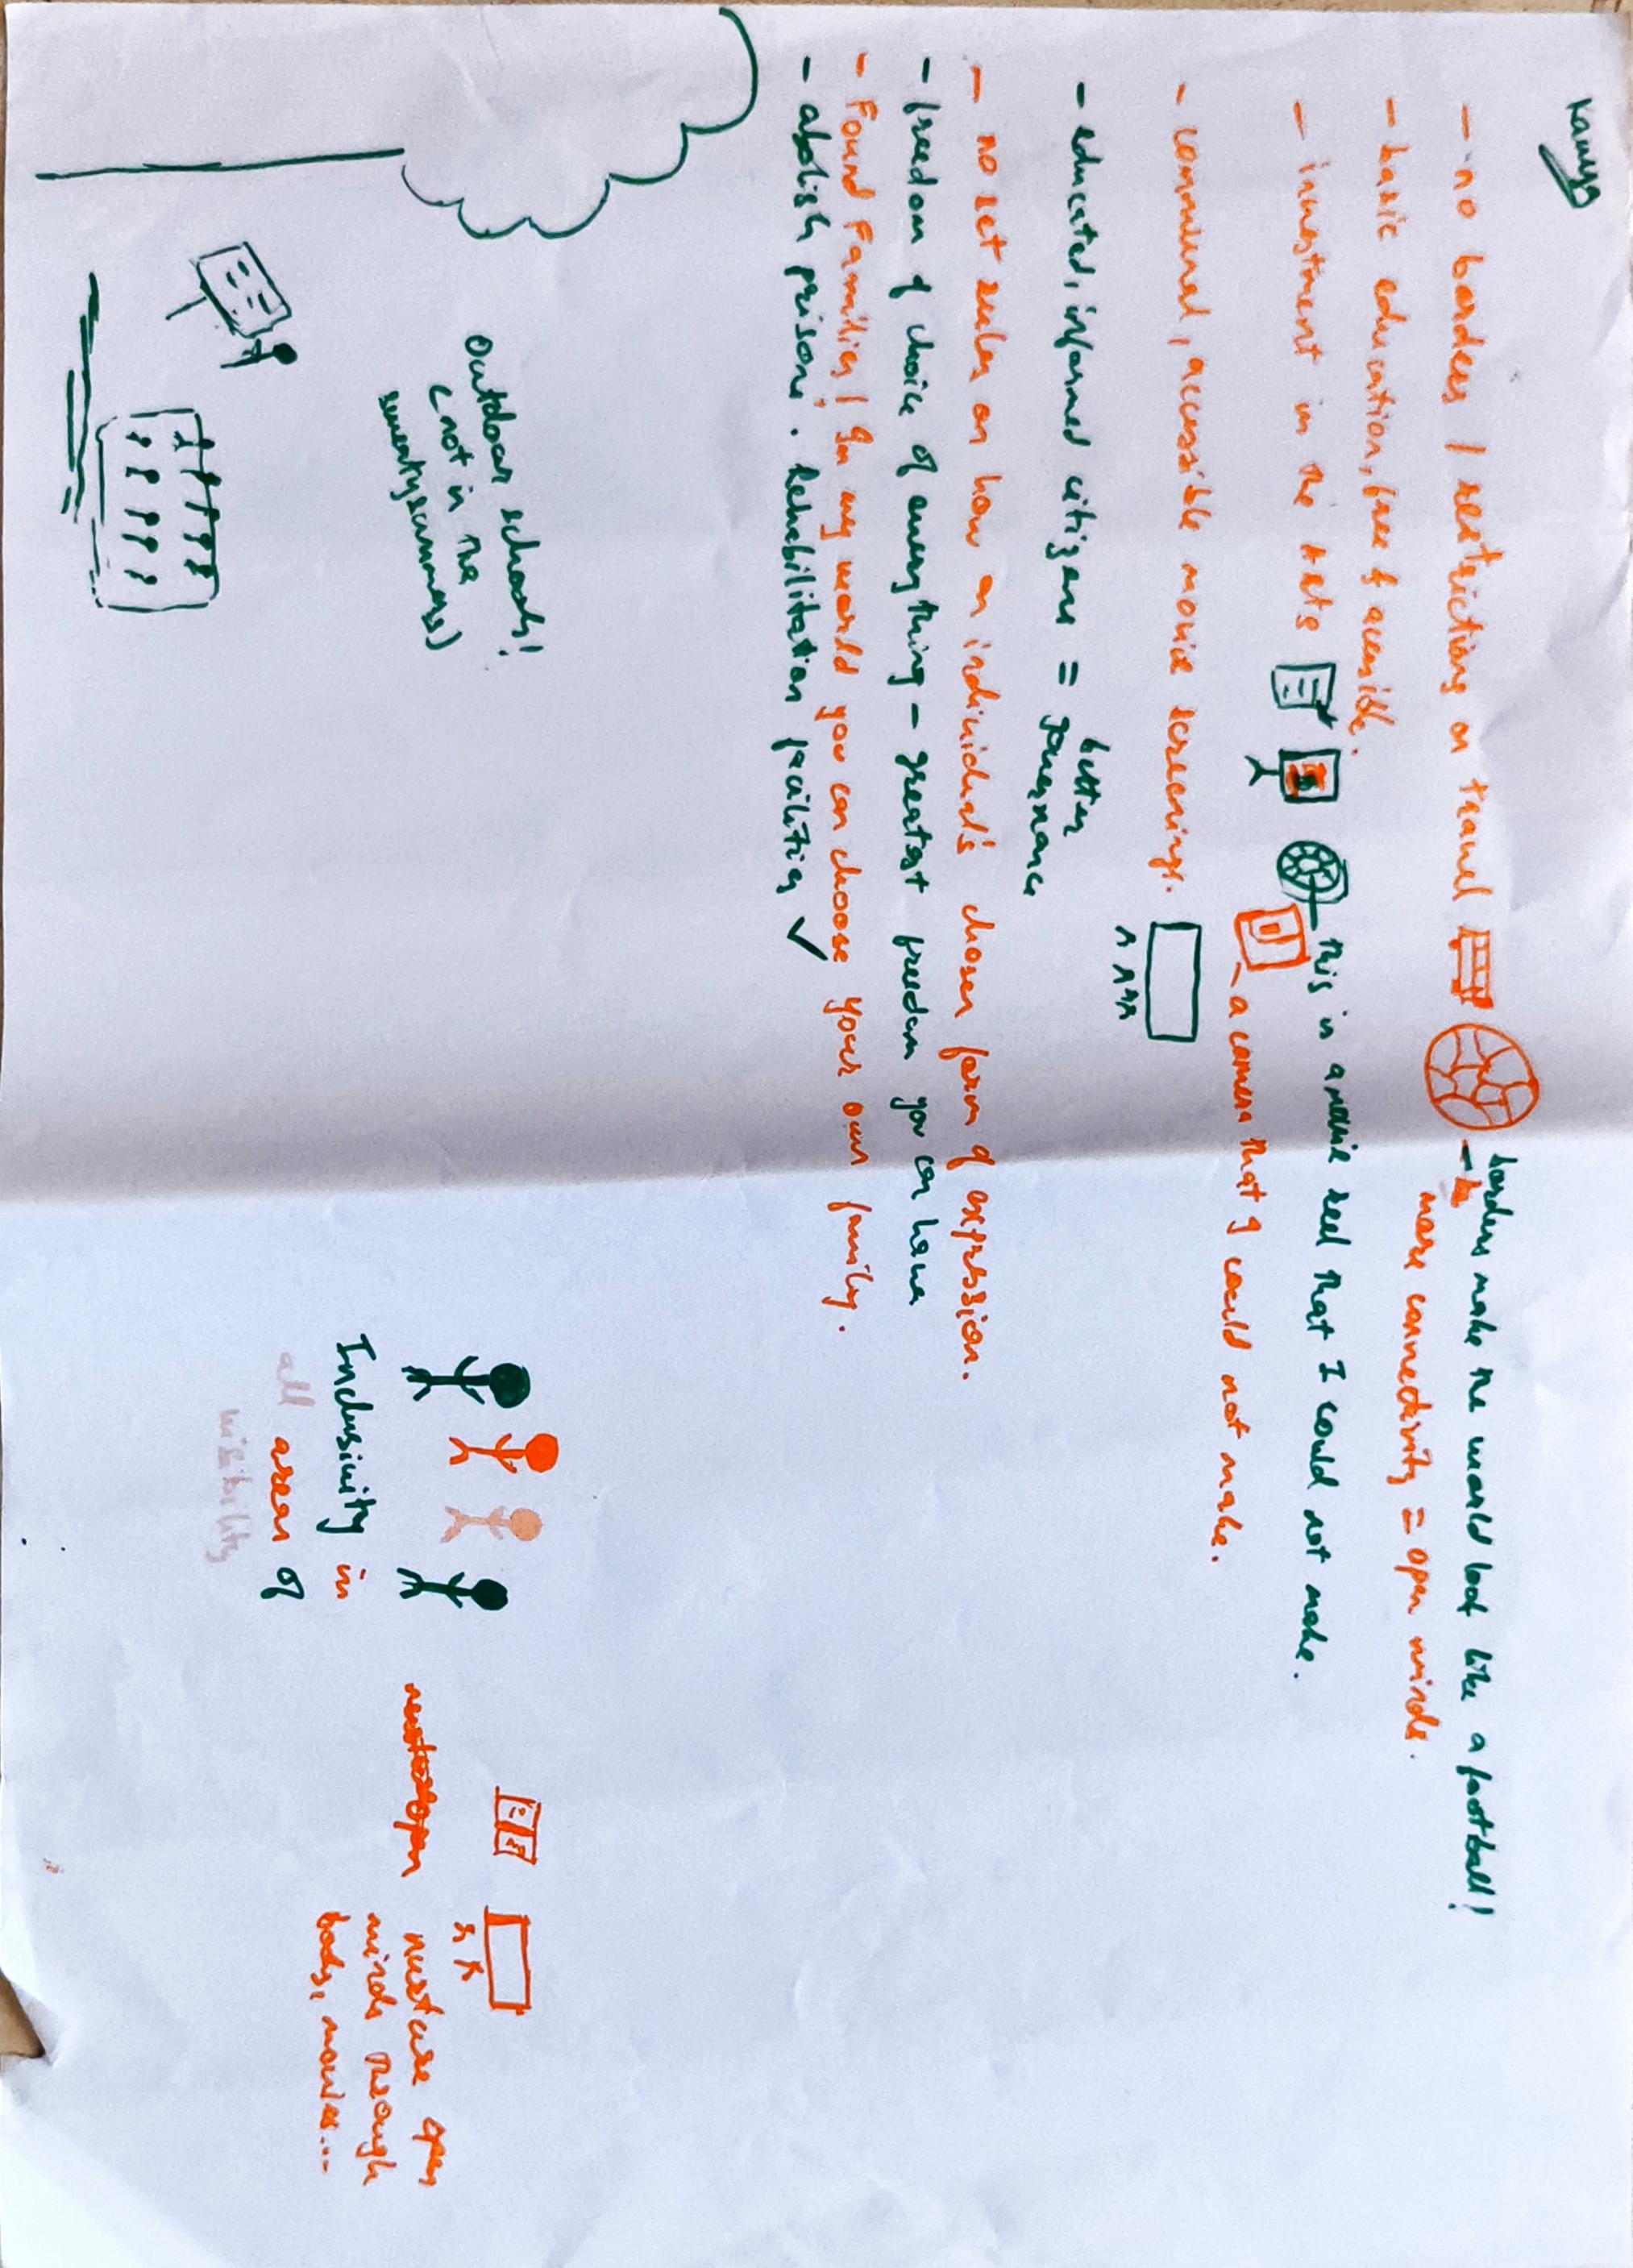 Kavya
- no borders / restrictions on travel
borders make the world look like a football!
- more connectivity = open minds.
- basic education, free & accessible.
- investment in the arts
this is a movie reel that I could not make.
- a camera that I could not make.
- communal, accessible movie screenings.
- educated, informed citizens = better governance
- no set rules on how an individual's chosen form of expression.
- freedom of choice of everything - greatest freedom you can have
- Found Families! In my world you can choose your own family.
- abolish prisons. Rehabilitation facilities ✓
Outdoor schools!
(not in the
sweaty summers)
Inclusivity in
all areas of
visibility
nurture open
minds through
books, movies...